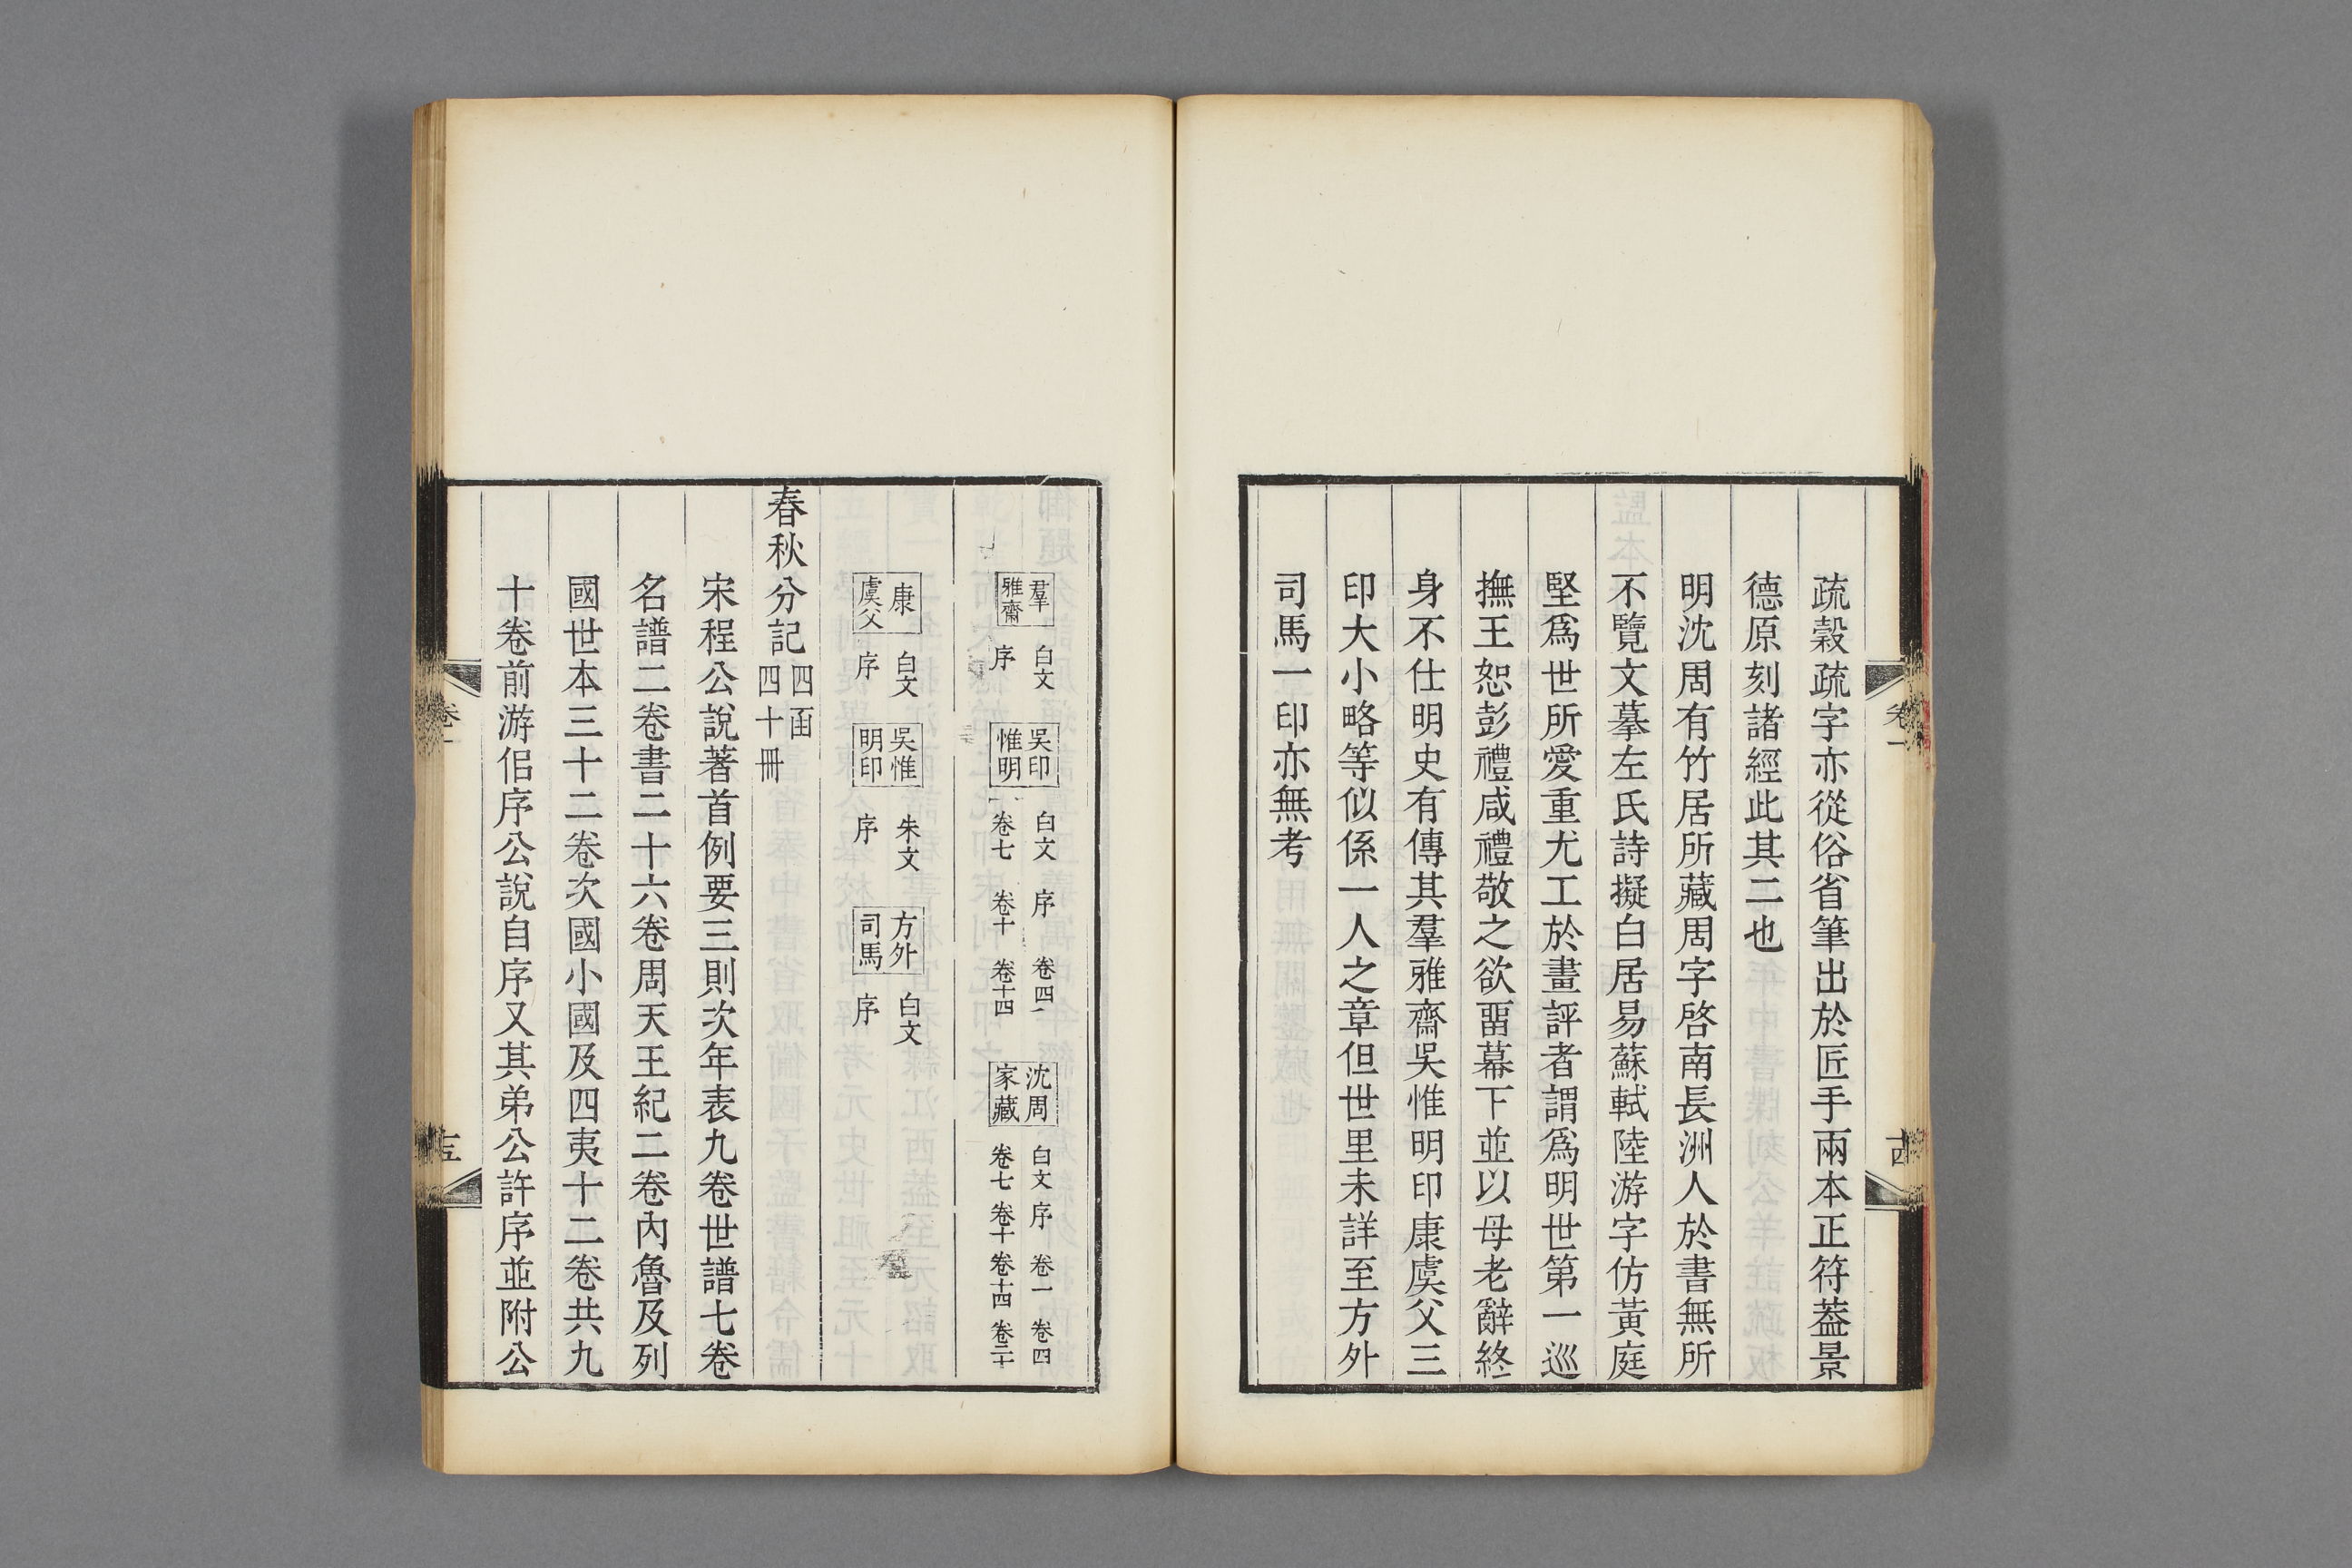 疏穀疏字亦從俗省筆出於匠手兩本正符葢景
德原刻諸經此其二也
明沈周有竹居所藏周字啓南長洲人於書無所
不覽文摹左氏詩擬白居易蘇軾陸游字仿黃庭
堅爲世所愛重尤工於畫評者謂爲明世第一巡
撫王恕彭禮咸禮敬之欲畱幕下並以母老辭終
身不仕明史有傳其羣雅齋吳惟明印康虞父三
印大小略等似係一人之章但世里未詳至方外
司馬一印亦無考
卷一
十四
羣雅齋 白文 序
吳印惟明 白文 卷七 序 卷十 卷四 卷十四
沈周家藏 白文 卷七 序 卷十 卷一 卷十四 卷四 卷二十
康虞父 白文 序
吳惟明印 朱文 序
方外司馬 白文 序
春秋分記 四函四十冊
宋程公說著首例要三則次年表九卷世譜七卷
名譜二卷書二十六卷周天王紀二卷內魯及列
國世本三十二卷次國小國及四夷十二卷共九
十卷前游侶序公說自序又其弟公許序並附公
卷一
十五